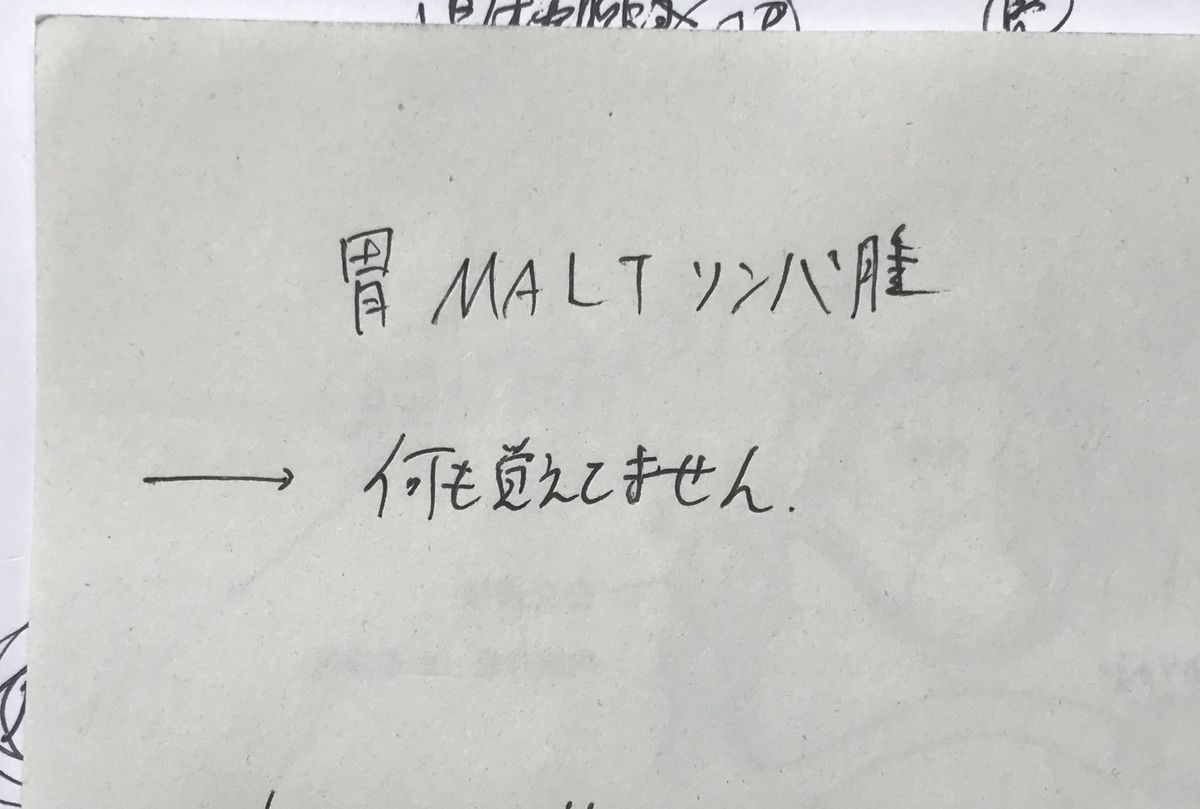 胃 MALT リンパ腫
→ 何も覚えてません.